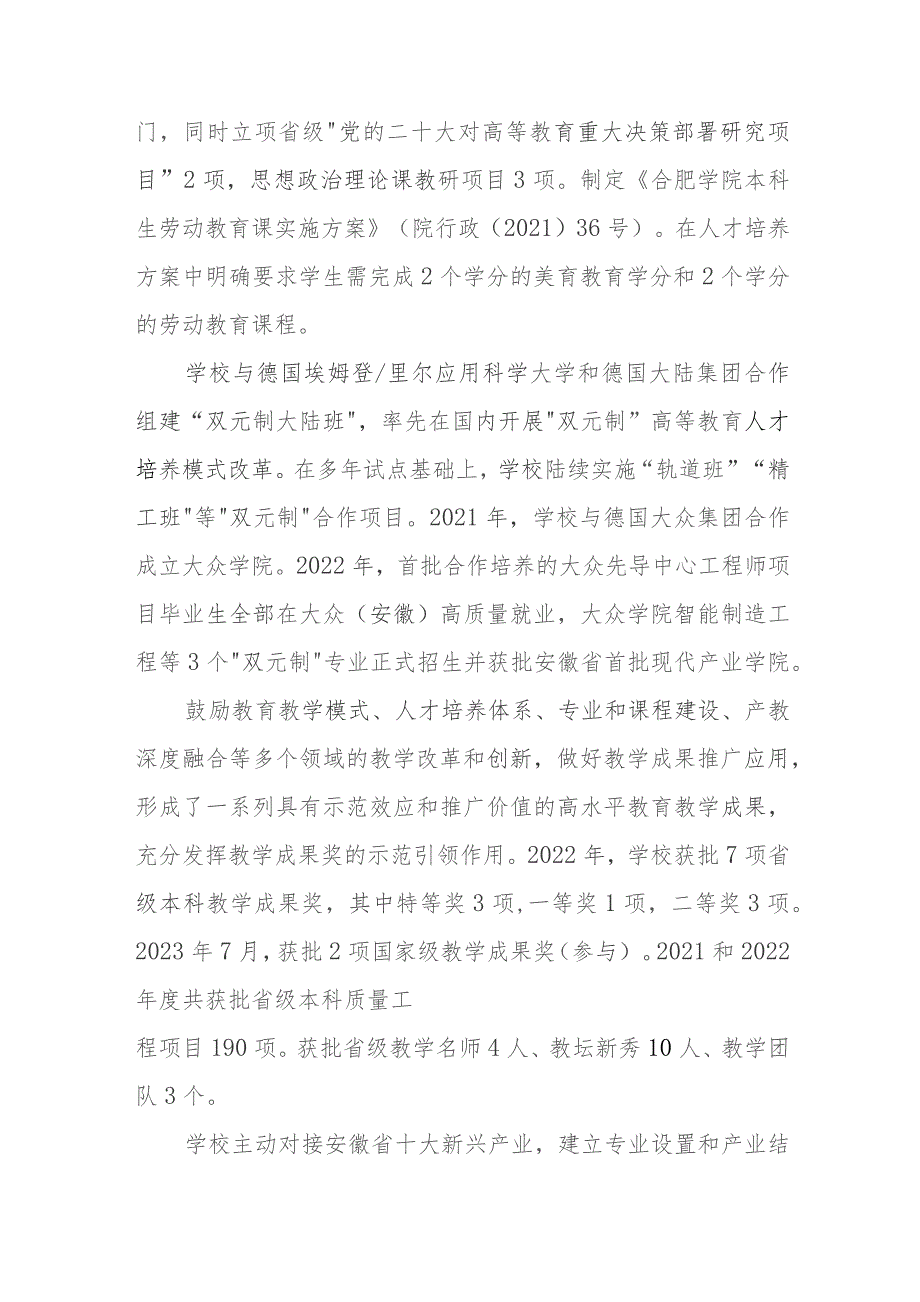 门，同时立项省级"党的二十大对高等教育重大决策部署研究项
目”2 项，思想政治理论课教研项目 3 项。制定《合肥学院本科
生劳动教育课实施方案》（院行政（2021）36 号）。在人才培养
方案中明确要求学生需完成 2 个学分的美育教育学分和 2 个学分
的劳动教育课程。
学校与德国埃姆登/里尔应用科学大学和德国大陆集团合作
组建“双元制大陆班"，率先在国内开展"双元制”高等教育人才
培养模式改革。在多年试点基础上，学校陆续实施“轨道班”“精
工班"等"双元制"合作项目。2021 年，学校与德国大众集团合作
成立大众学院。2022 年，首批合作培养的大众先导中心工程师项
目毕业生全部在大众（安徽）高质量就业，大众学院智能制造工
程等 3 个"双元制"专业正式招生并获批安徽省首批现代产业学院。
鼓励教育教学模式、人才培养体系、专业和课程建设、产教
深度融合等多个领域的教学改革和创新，做好教学成果推广应用，
形成了一系列具有示范效应和推广价值的高水平教育教学成果，
充分发挥教学成果奖的示范引领作用。2022 年，学校获批 7 项省
级本科教学成果奖，其中特等奖 3 项,一等奖 1 项，二等奖 3 项。
2023 年 7 月,获批 2 项国家级教学成果奖（参与）。2021 和 2022
年度共获批省级本科质量工
程项目 190 项。获批省级教学名师 4 人、教坛新秀 10 人、教学团
队 3 个。
学校主动对接安徽省十大新兴产业，建立专业设置和产业结